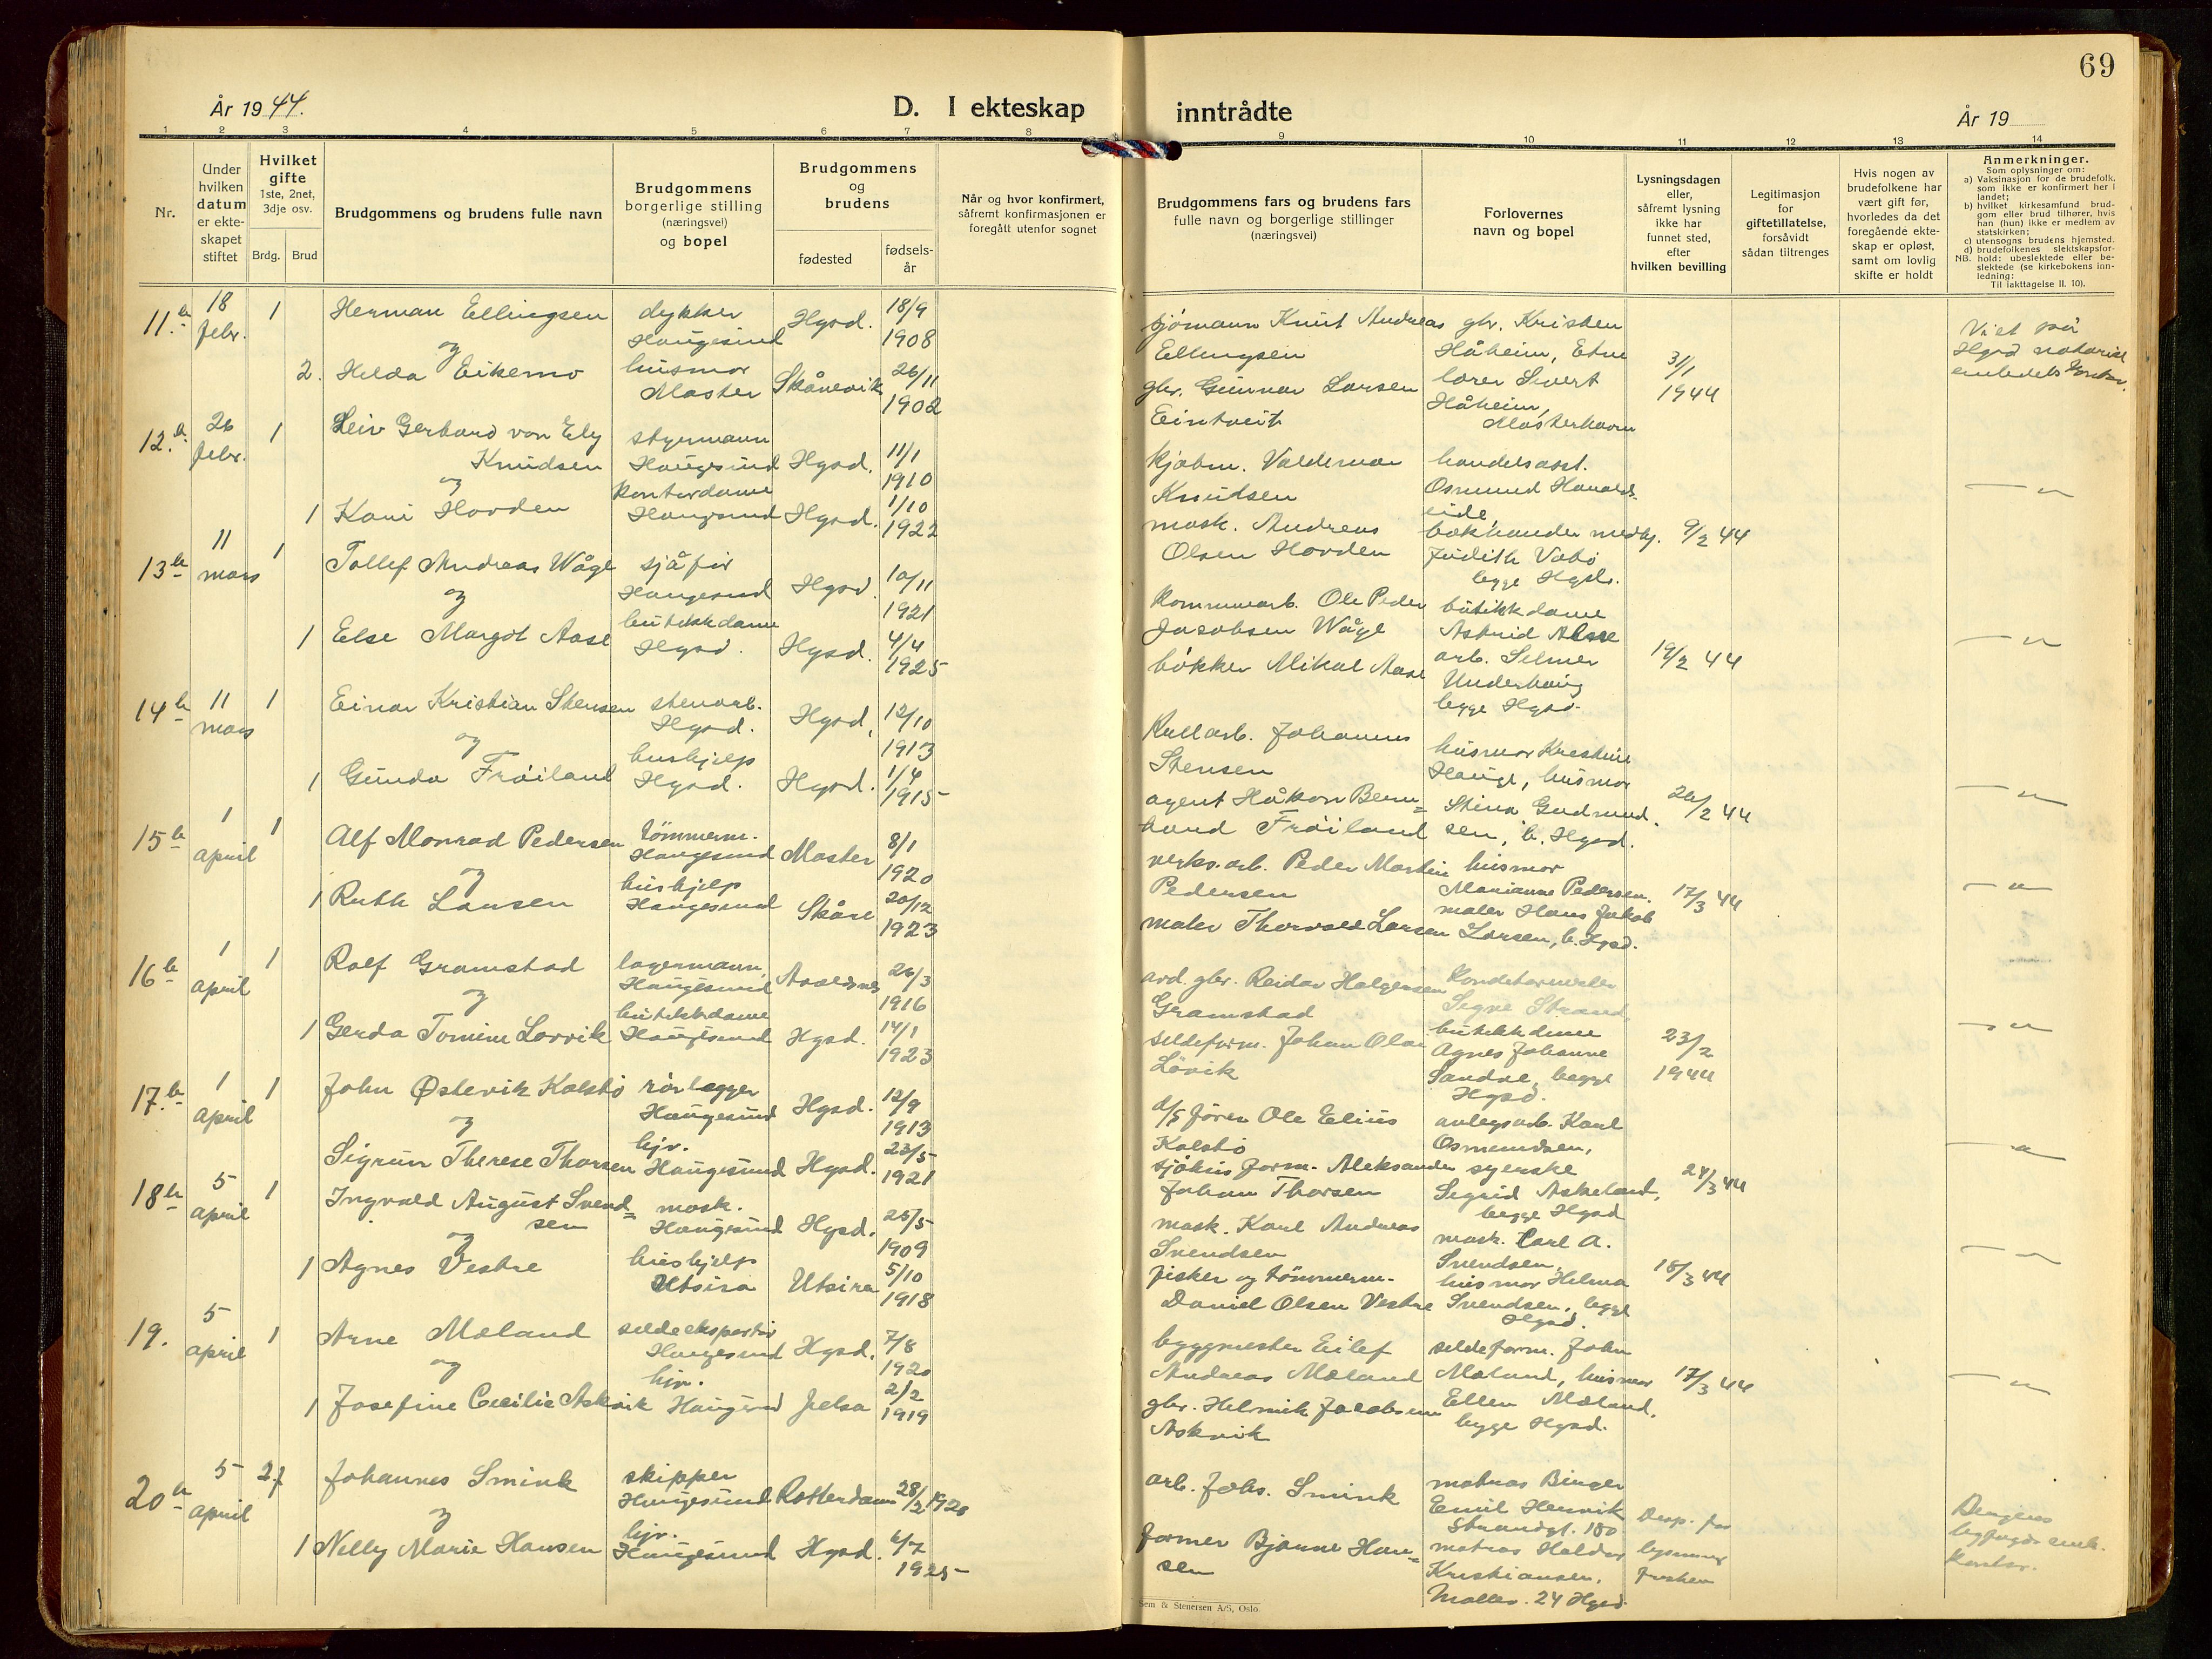 69
År 1944.
D. I ekteskap inntrådte
År 19
1 2 3 4 5 6 7 8 9 10 11 12 13 14
Nr.
Under hvilken datum er ekte-skapet stiftet
Hvilket gifte 1ste, 2net, 3dje osv.
Brdg. Brud
Brudgommens og brudens fulle navn
Brudgommens borgerlige stilling (næringsvei) og bopel
Brudgommens og brudens
fødested
fødsels-år
Når og hvor konfirmert, såfremt konfirmasjonen er foregått utenfor sognet
Brudgommens fars og brudens fars fulle navn og borgerlige stillinger (næringsvei)
Forlovernes navn og bopel
Lysningsdagen eller, såfremt lysning ikke har funnet sted, efter hvilken bevilling
Legitimasjon for giftetillatelse, forsåvidt sådan tiltrenges
Hvis nogen av brudefolkene har vært gift før, hvorledes da det foregående ekte-skap er opløst, samt om lovlig skifte er holdt
Anmerkninger.
Som oplysninger om:
a) Vaksinasjon for de brudefolk, som ikke er konfirmert her i landet;
b) hvilket kirkesamfund brud-gom eller brud tilhører, hvis han (hun) ikke er medlem av statskirken;
c) utensogns brudens hjemsted.
d) brudefolkenes slektskapsfor-hold: ubeslektede eller be-slektede (se kirkebokens inn-ledning:
NB.
Til iakttagelse II. 10).
11. 18 febr. 1 Herman Ellingsen dykker Haugesund Hgsd. 18/9 1908
og
2. Helda Eikemo husmor Moster Skånevik 26/11 1902
sjømann Knut Andreas Ellingsen
gbr. Gunnar Larsen Eintveit
gbr. Kristen Håheim, Etne
lærer Sivert Håheim, Mosterhavn
31/1 1944
Vigt på Hgsd notarial embedets kontor.
12. 26 febr. 1 Leiv Gerhard von Ely Knudsen styrmann Haugesund Hgsd. 11/1 1910
og
1 Kari Hovden kontordame Haugesund Hgsd. 1/10 1922
kjøbm. Valdemar Knudsen
mask. Andreas Olsen Hovden
handelsasst. Osmund Haralds-eide,
bokhander medhj. Judith Vabø begge Hgsd.
9/2 44
— " —
13 11 mars 1 Tollef Andreas Våge sjåfør Haugesund Hgsd. 10/11 1921
og
1 Else Margot Aase butikkdame Hgsd. Hgsd. 4/4 1925
kommunearb. Ole Peder Jacobsen Våge
bøkker Mikal Aase
butikkdame Astrid Aase
arb. Selmer Underhaug begge Hgsd.
19/2 44
— " —
14 11 mars 1 Einar Kristian Stensen stenarb. Hgsd. Hgsd. 12/10 1913
og
1 Gunda Frøiland hushjelp Hgsd. Hgsd. 1/4 1915
kullarb. Johannes Stensen
agent Håkon Bern=hard Frøiland
husmor Kristine Hauge, husmor Stina Gudmund. sen, b. Hgsd.
26/2 44
— " —
15 1 april 1 Alf Monrad Pedersen tømmerm. Haugesund Moster 8/1 1920
og
1 Ruth Larsen hushjelp Haugesund Skåre 20/12 1923
verks.arb. Peder Martin Pedersen
maler Thorvald Larsen
husmor Marianne Pedersen.
maler Hans Jakob Larsen, b. Hgsd.
17/3 44
— " —
16 1 april 1 Rolf Gramstad lagermann, Haugesund 26/3 1916
og
1 Gerda Tomine Løvvik butikkdame Haugesund Hgsd. 14/1 1923
Reidar Helgesen Gramstad
seldeform. Johan Olai Løvik
Signe Strand,
butikkdame Agnes Johanne Sandve, begge Hgsd.
23/2 1944
— " —
17. 1 april 1 John Østevik Kalstø rørlægger Haugesund Hgsd. 12/9 1913
og
Sigrun Therese Thorsen hjv. Haugesund Hgsd. 23/5 1921
d/s fører Ole Elius Kalstø
sjøhus form. Aleksander Johan Thorsen
anlegsarb. Karl Osmundsen,
syerske Sigrid Askeland, begge Hgsd
24/3 44
— " —
18 5 april 1 Ingvald August Svend=sen mask. Haugesund Hgsd. 25/5 1909
og
1 Agnes Vestre hushjelp Utsira Utsira 5/10 1918
mask. Karl Andreas Svendsen
fisker og tømmerm. Daniel Olsen Vestre
mask. Carl A. Svendsen,
husmor Helma Svendsen, begge Hgsd.
18/3 44
— " —
19. 5 april 1 Arne Mæland seldeeksportør, Haugesund Hgsd. 7/8 1920
og
1 Josefine Cecilie Askvik hjv. Haugesund Jelsa 2/2 1919
byggmester Eilef Andreas Mæland
gbr. Helmik Jacobsen Askvik
seldeform. John Mæland, husmor Ellen Mæland, begge Hgsd.
17/3 44
— " —
20 5 april 2. Johannes Smink skipper Haugesund Rotterdam 28/2 1920
og
1 Nelly Marie Hansen hjv. Haugesund Hgsd. 6/7 1925
arb. Johs. Smink
former Bjarne Han=sen
matros Binger Emil Henrik Strandgt. 180
matros Haldor Kristiansen, Møller. 24 Hgsd.
Disp. for lysning
kontor.
Sem & Stenersen A/S, Oslo.